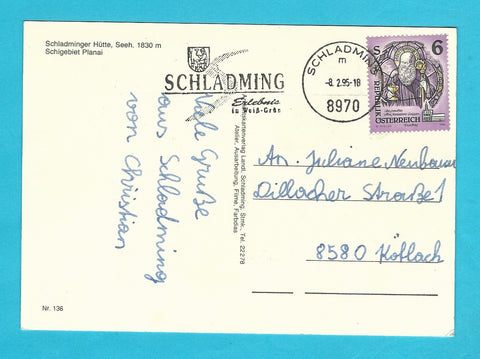 Schladminger Hütte, Seeh. 1830 m
Schigebiet Planai
SCHLADMING
Erlebnis
in Weiß-Grün
SCHLADMING
m
-8. 2. 95-18
8970
S 6
REPUBLIK
ÖSTERREICH
Viele Grüße
aus Schladming
von Christian
Ansichtskartenverlag Landl, Schladming, Stmk., Tel. 22276
Atelier, Ausarbeitung, Filme, Farbdias
An. Juliane Neubauer
Dillacher Straße 1
8580 Köflach
Nr. 136